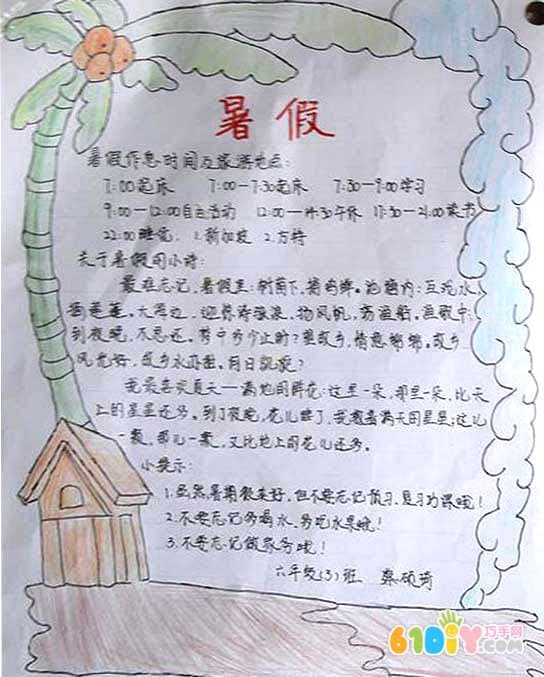 暑假
暑假作息时间及旅游地点:
7:00起床 7:00—7:30起床 7:30—9:00学习
9:00—12:00自主活动 12:00— 午休 17:30—21:00读书
22:00睡觉. 1.新加坡 2.方特
关于暑假的小诗:
最难忘记,暑假里:树荫下,捕鸣蝉。池塘内:互戏水,
摘莲蓬。大海边,迎 海浪,扬风帆,
到夜晚,不思还。 故乡,情意绵绵。故乡
风光好,故乡水 。何日 ?
我最喜欢夏天——满地的鲜花:这里一朵,那里一朵,比天
上的星星还多。到了夜晚,花儿睡了,我数着满天的星星:这儿
一颗,那儿一颗,又比地上的花儿还多。
小提示:
1.虽然暑期很美好,但不要忘记预习、复习功课哦!
2.不要忘记多喝水,多吃水果哦!
3.不要忘记做家务哦!
六年级(3)班 蔡硕琦
61DIY巧手网
.com